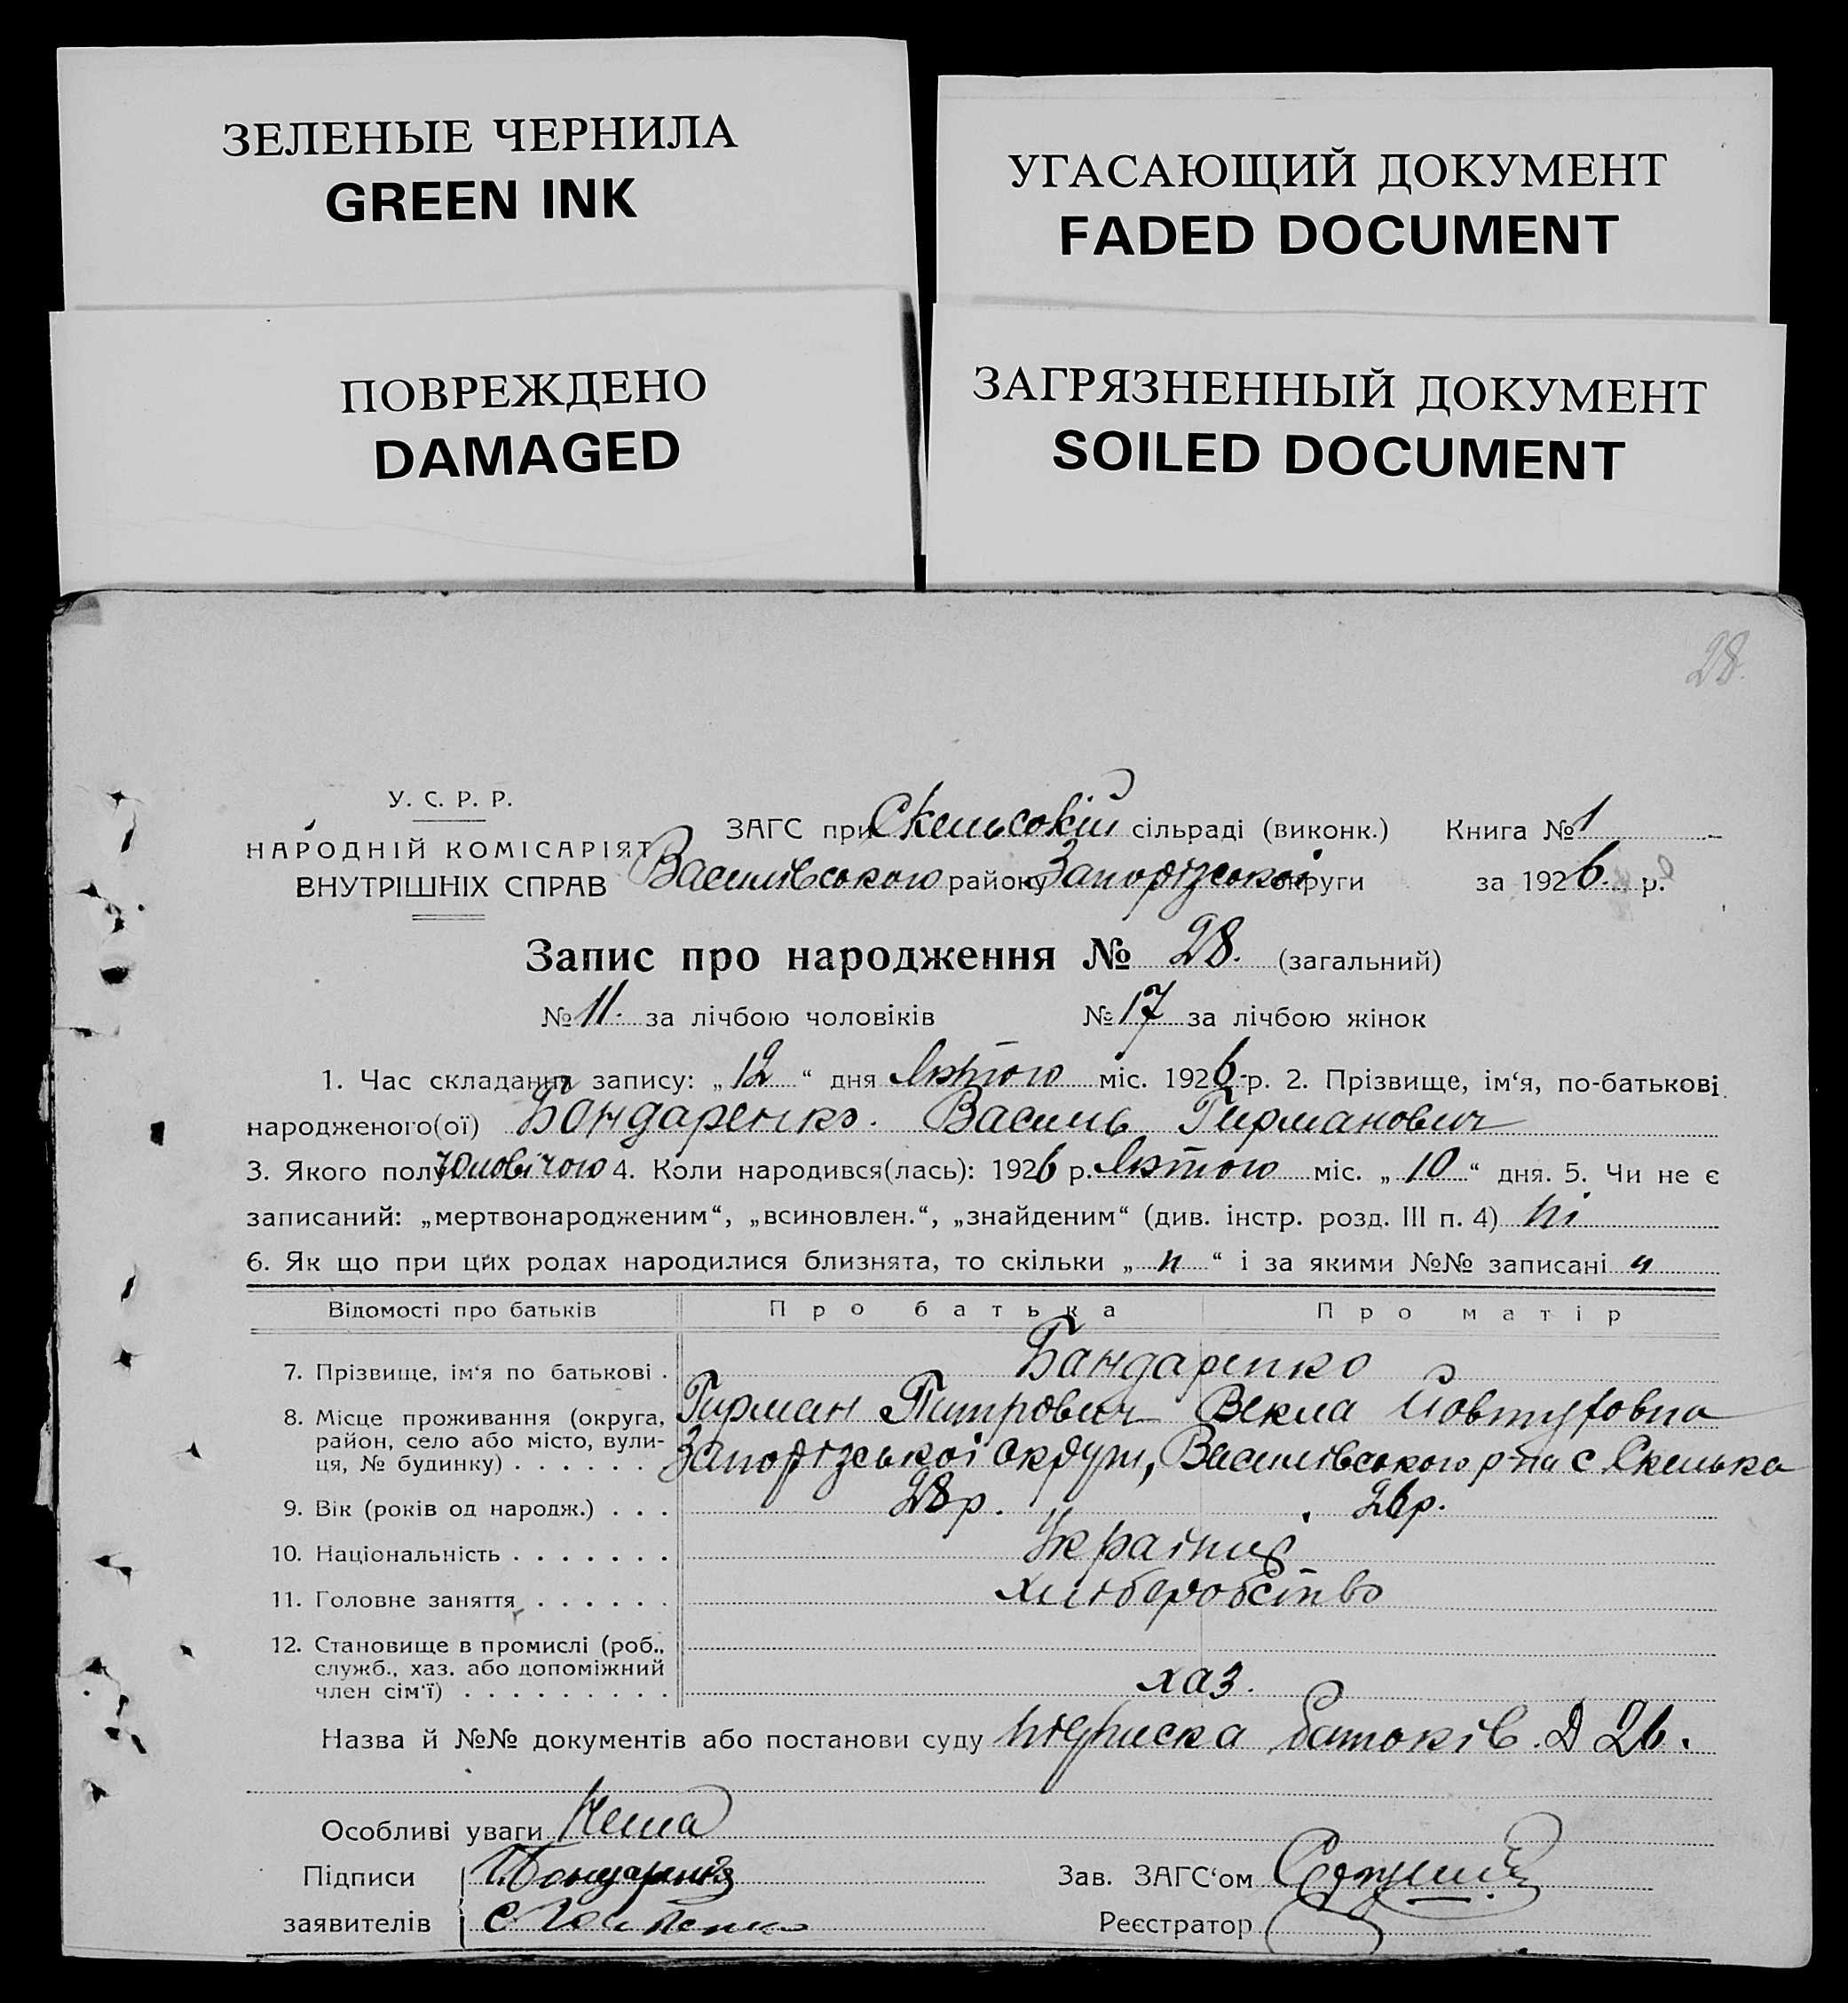 ЗЕЛЕНЫЕ ЧЕРНИЛА
GREEN INK
УГАСАЮЩИЙ ДОКУМЕНТ
FADED DOCUMENT
ПОВРЕЖДЕНО
DAMAGED
ЗАГРЯЗНЕННЫЙ ДОКУМЕНТ
SOILED DOCUMENT
28.
У. С. Р. Р.
НАРОДНІЙ КОМІСАРІЯТ
ВНУТРІШНІХ СПРАВ
ЗАГС при Скельській сільраді (виконк.) Книга № 1
Василівського району Запорізської округи за 1926. р.
Запис про народження № 28. (загальний)
№ 11. за лічбою чоловіків № 17 за лічбою жінок
1. Час складання запису: „12“ дня Лютого міс. 1926 р. 2. Прізвище, ім‘я, по-батькові
народженого(ої) Бондаренко. Василь Гирманович
3. Якого полу Чоловічого 4. Коли народився(лась): 1926 р. Лютого міс. „10“ дня. 5. Чи не є
записаний: „мертвонародженим“, „всиновлен.“, „знайденим“ (див. інстр. розд. III п. 4) Ні
6. Як що при цих родах народилися близнята, то скільки „н“ і за якими №№ записані н
Відомості про батьків Про батька Про матір
7. Прізвище, ім‘я по батькові . Бандаренко
Гирман Питрович Векла Йовтуховна
8. Місце проживання (округа,
район, село або місто, вули-
ця, № будинку) . . . . . . Запорізської округи, Василівського р-на с. Скелька
9. Вік (років од народж.) . . . 28 р. 26 р.
10. Національність . . . . . . . Українці
11. Головне заняття . . . . . . хліборобство
12. Становище в промислі (роб.,
служб., хаз. або допоміжний
член сім‘ї) . . . . . . . . . хаз.
Назва й №№ документів або постанови суду підписка батьків. Д 26.
Особливі уваги Нема
Підписи
заявителів
Зав. ЗАГС‘ом
Реєстратор